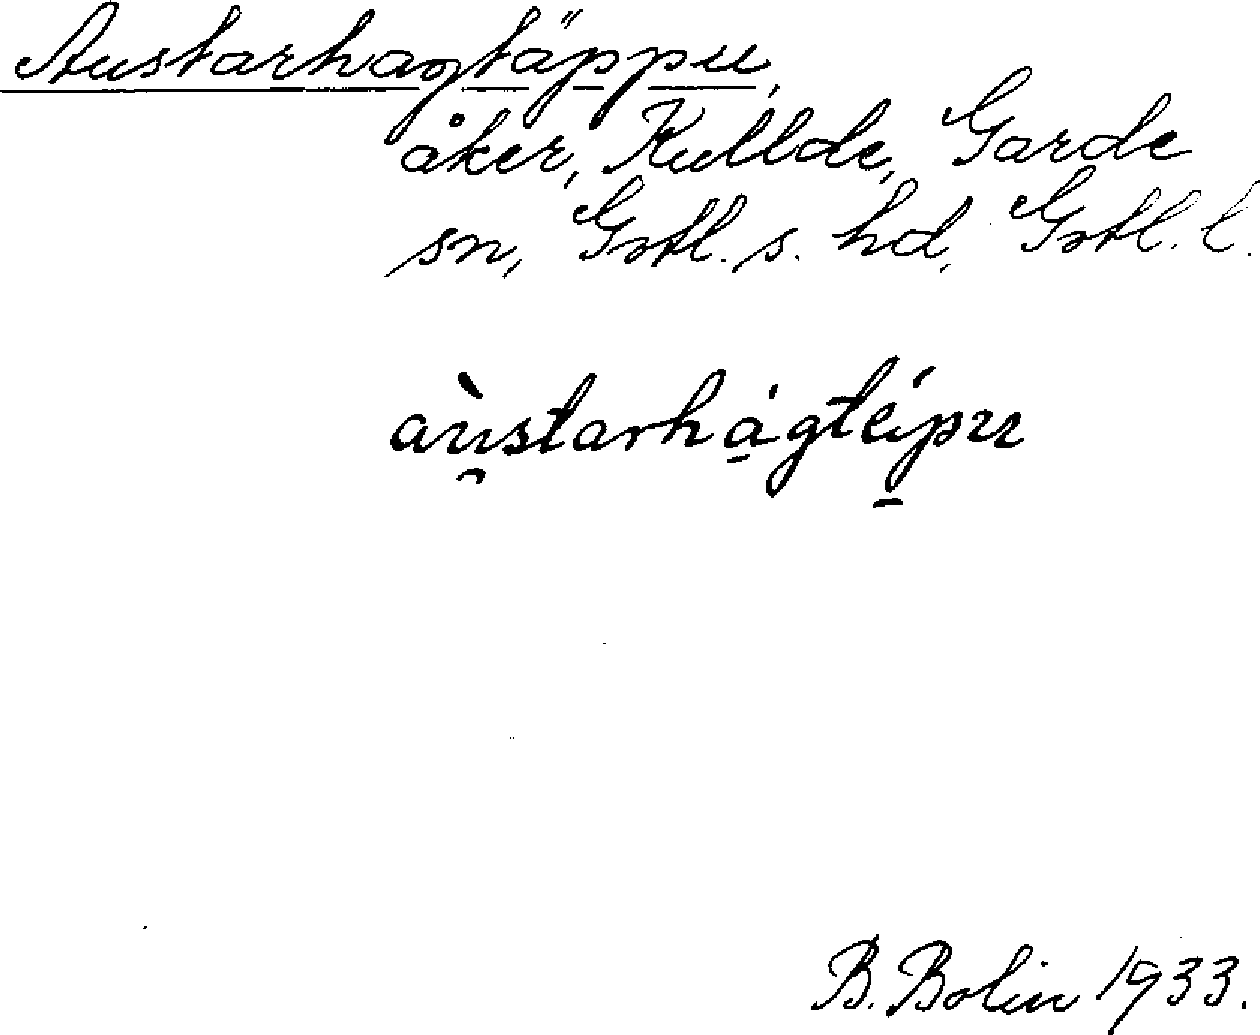 Austarhagtäppu,
åker, Kullde, Garde
sn, Gotl. s. hd, Gotl. l.
aù̯starhá̱gté̱pu
B. Bolin 1933.